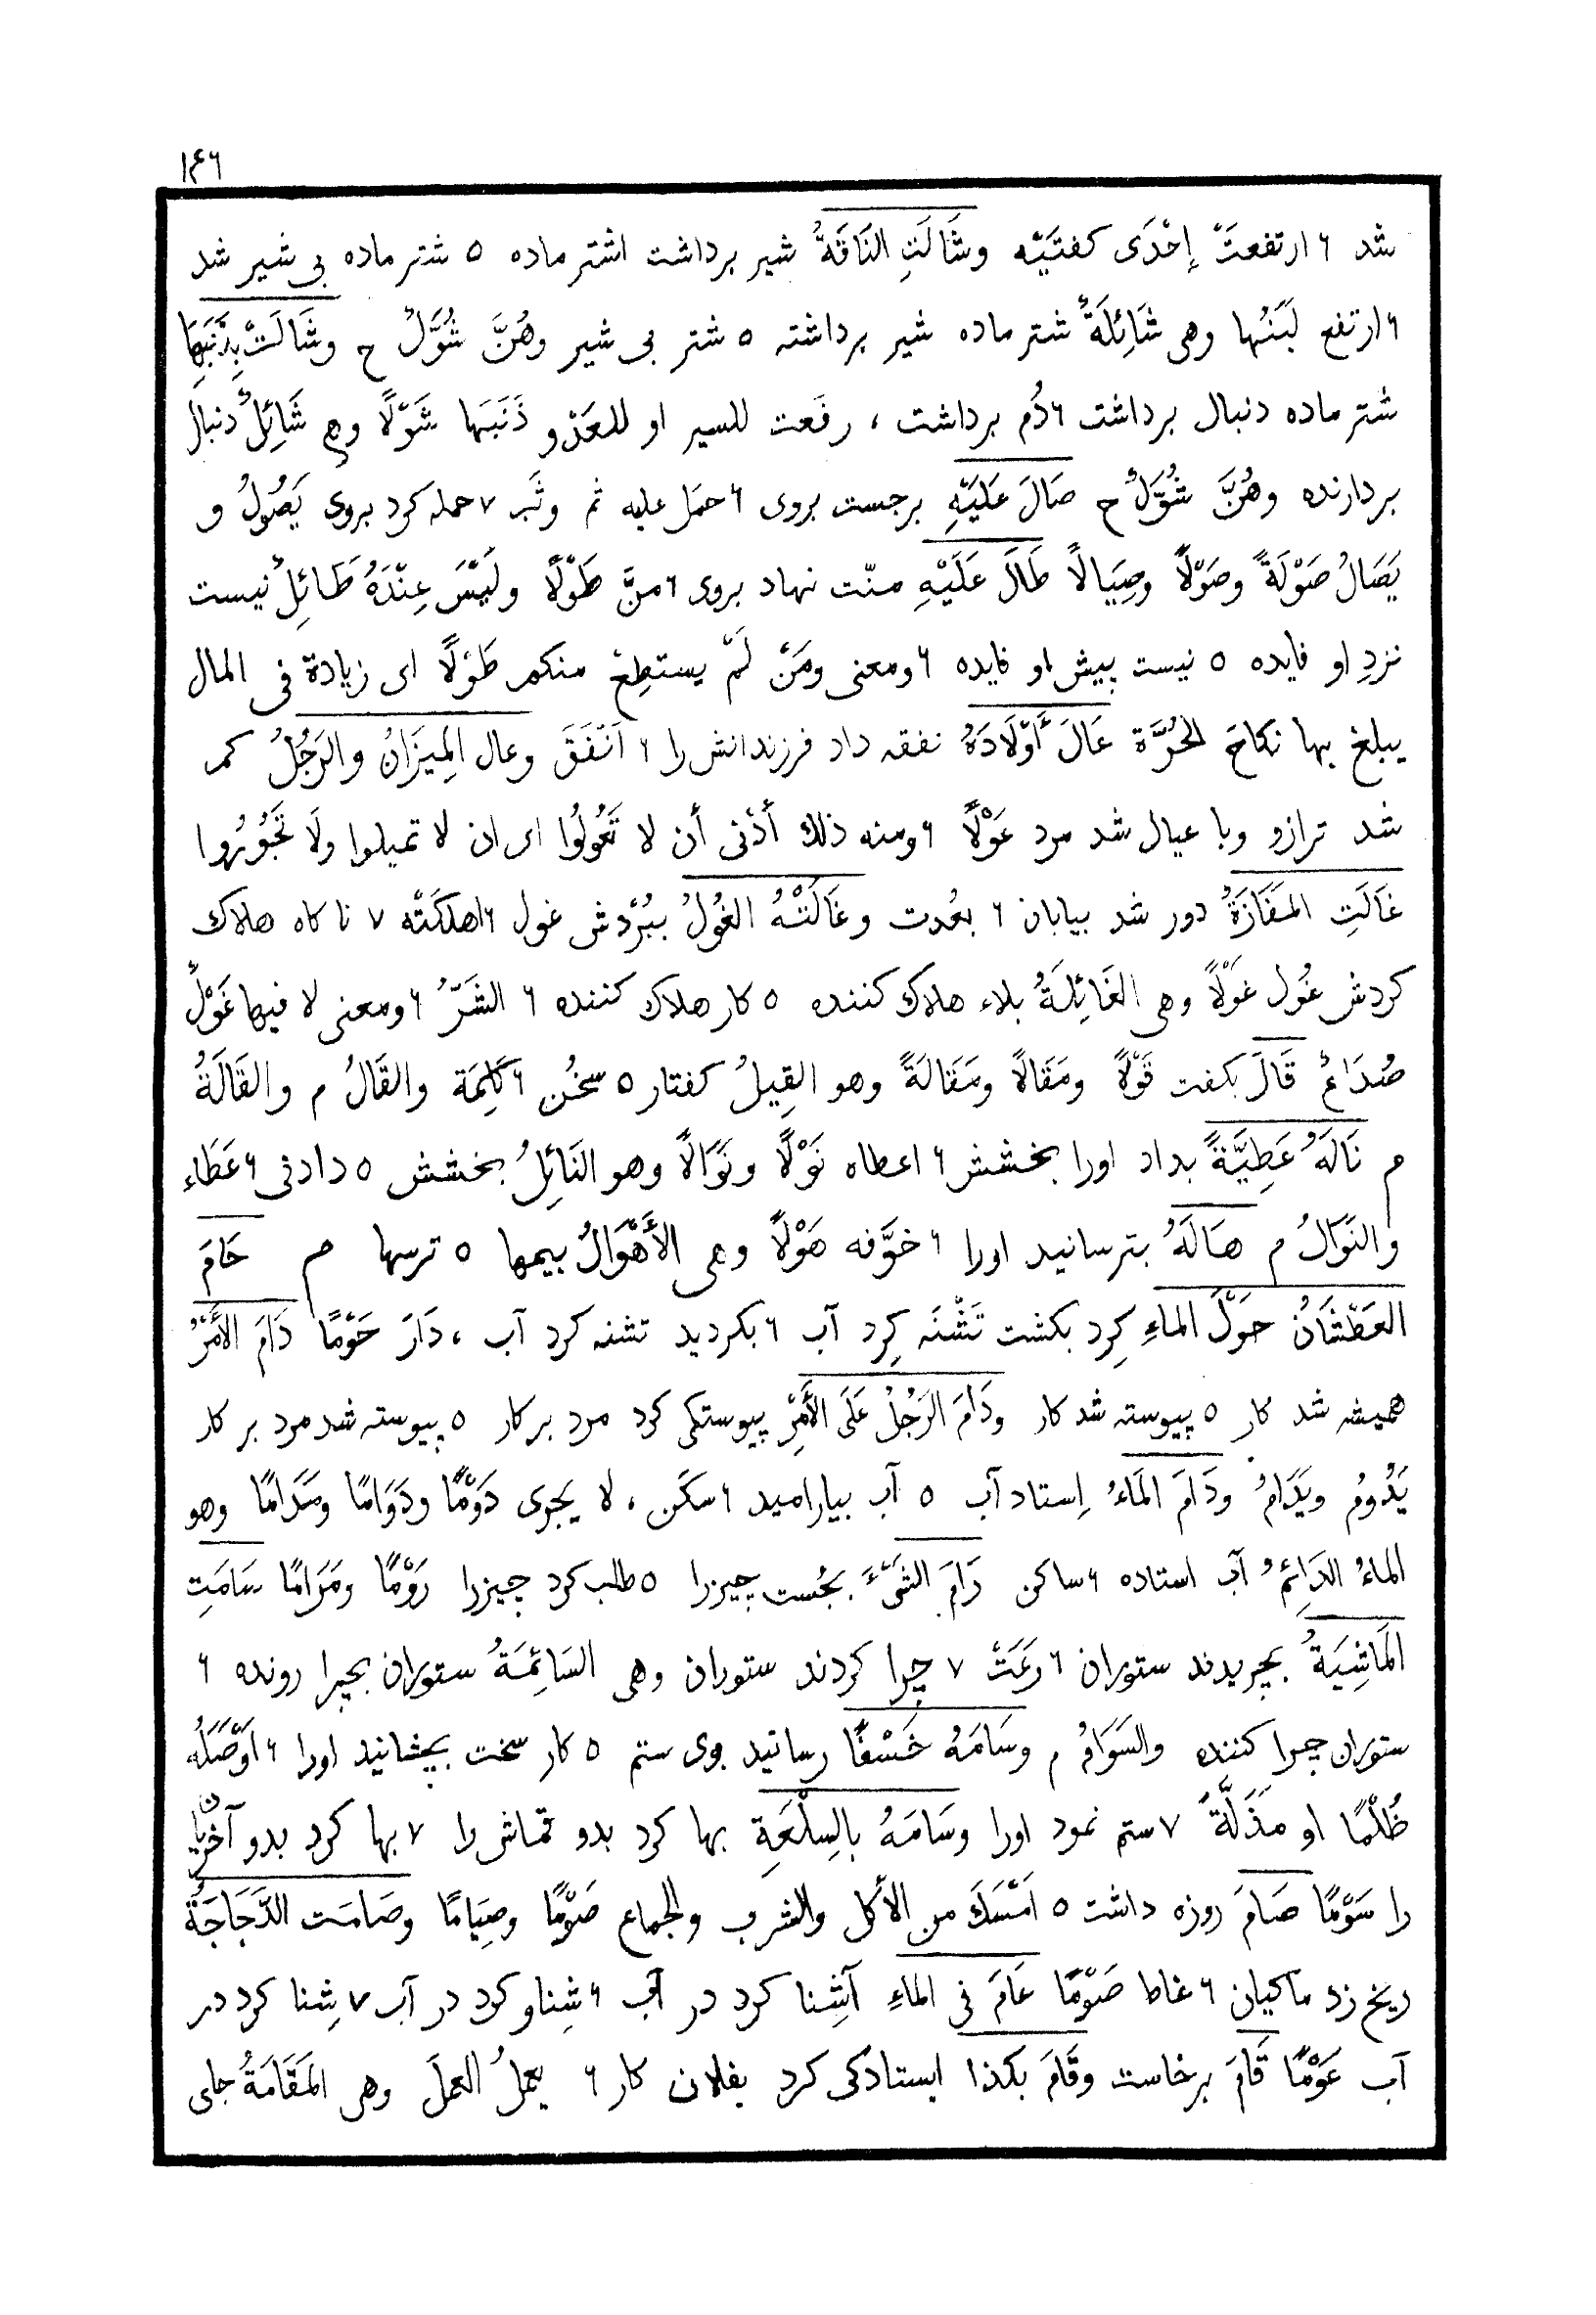 ۱۴۶
شد ۶ ارتفعتْ إحْدَى كفتَيْه وشَالَتِ النَاقَةُ شير برداشت اشتر ماده ۵ شتر ماده بى شير شد
۶ ارتفع لبَنُها وهى شَائِلَةٌ شتر ماده شير برداشته ۵ شتر بى شير وهُنَّ شُوَّلٌ ح وشَالَتْ بِذَنَبِهَا
شتر ماده دنبال برداشت ۶ دُم برداشت ، رفَعت للسير او للعَدْو ذَنَبَها شَوْلًا وهى شَائِلٌ دنبال
بردارنده وهُنَّ شُوَّلٌ ح صَالَ عَلَيْهِ برجست بروى ۶ حمَل عليه ثم وثَبَ ۷ حمله كرد بروى يَصُولُ و
يَصَالُ صَوْلَةً وصَوْلًا وصِيَالًا طَالَ عَلَيْهِ منّت نهاد بروى ۶ منَّ طَوْلًا ولَيْسَ عِنْدَهُ طَائِلٌ نيست
نزدِ او فايده ۵ نيست پيش او فايده ۶ ومعنى ومَنْ لَمْ يستطِعْ منكم طَوْلًا اى زيادة فى المال
يبلغ بها نكاحَ الحُرَّة عَالَ أَوْلَادَهُ نفقه داد فرزندانش را ۶ اَنْفَقَ وعال المِيزَانُ والرَجُلُ كم
شد ترازو وبا عيال شد مرد عَوْلًا ۶ ومنه ذلك أدْنى أن لا تَعُولُوا اى ان لا تميلوا ولَا تَجُورُوا
غَالَتِ المَفَازَةُ دور شد بيابان ۶ بعُدت وغَالَتْهُ الغُولُ ببُرْدش غول ۶ اهلكَتْه ۷ ناكاه هلاك
كردش غُول غَوْلًا وهى الغَائِلَةُ بلاء هلاك كننده ۵ كار هلاك كننده ۶ الشَرّ ۶ ومعنى لا فيها غَوْلٌ
صُدَاعٌ قَالَ بكفت قَوْلًا ومَقَالًا ومَقَالَةً وهو القِيلُ كفتار ۵ سخُن ۶ كَلِمَة والقَالُ م والقَالَةُ
م نَالَهُ عَطِيَّةً بداد اورا بخشش ۶ اعطاه نَوْلًا ونَوَالًا وهو النَائِلُ بخشش ۵ دادنى ۶ عَطَاء
والنَوَالُ م هَالَهُ بترسانيد اورا ۶ خوَّفه هَوْلًا وهى الأَهْوَالُ بيمها ۵ ترسها م حَامَ
العَطْشَانُ حَوْلَ الماءِ كِرد بكشت تَشْنَه كِرد آب ۶ بكرديد تشنه كرد آب ، دَارَ حَوْمًا دَامَ الأَمْرُ
هميشه شد كار ۵ پيوسته شد كار ودَامَ الرَجُلُ عَلَى الأَمْرِ پيوستكى كرد مرد بر كار ۵ پيوسته شد مرد بر كار
يَدُومُ ويَدَامُ ودَامَ المَاءُ اِستاد آب ۵ آب بياراميد ۶ سكَن ، لا يجرى دَوْمًا ودَوَامًا ومَدَامًا وهو
الماءُ الدَائِمُ آب استاده ۶ ساكن رَامَ الشَىْءَ بجُست چيزرا ۵ طلب كرد چيزرا رَوْمًا ومَرَامًا سَامَتِ
المَاشِيَةُ بچريدند ستوران ۶ رعَتْ ۷ چرا كردند ستوران وهى السَائِمَةُ ستوران بچرا رونده ۶
ستوران چرا كننده والسَوَامُ م وسَامَهُ خَسْفًا رسانيد بوى ستم ۵ كار سخت بچشانيد اورا ۶ اوْصَلَه
ظُلْمًا او مَذَلَّةً ۷ ستم نمود اورا وسَامَهُ بالسِلْعَةِ بها كرد بدو قماش را ۷ بها كرد بدو آخريان
را سَوْمًا صَامَ روزه داشت ۵ اَمْسَكَ من الأكل والشرب والجماع صَوْمًا وصِيَامًا وصَامَت الدَّجَاجَةُ
ريخ زد ماكيان ۶ غاط صَوْمًا عَامَ فى الماءِ آشِنا كرد در آب ۶ شِناو كرد در آب ۷ شِنا كرد در
آب عَوْمًا قَامَ برخاست وقَامَ بكذا ايستادكى كرد بفلان كار ۶ يعملُ العملَ وهى المَقَامَةُ جاى